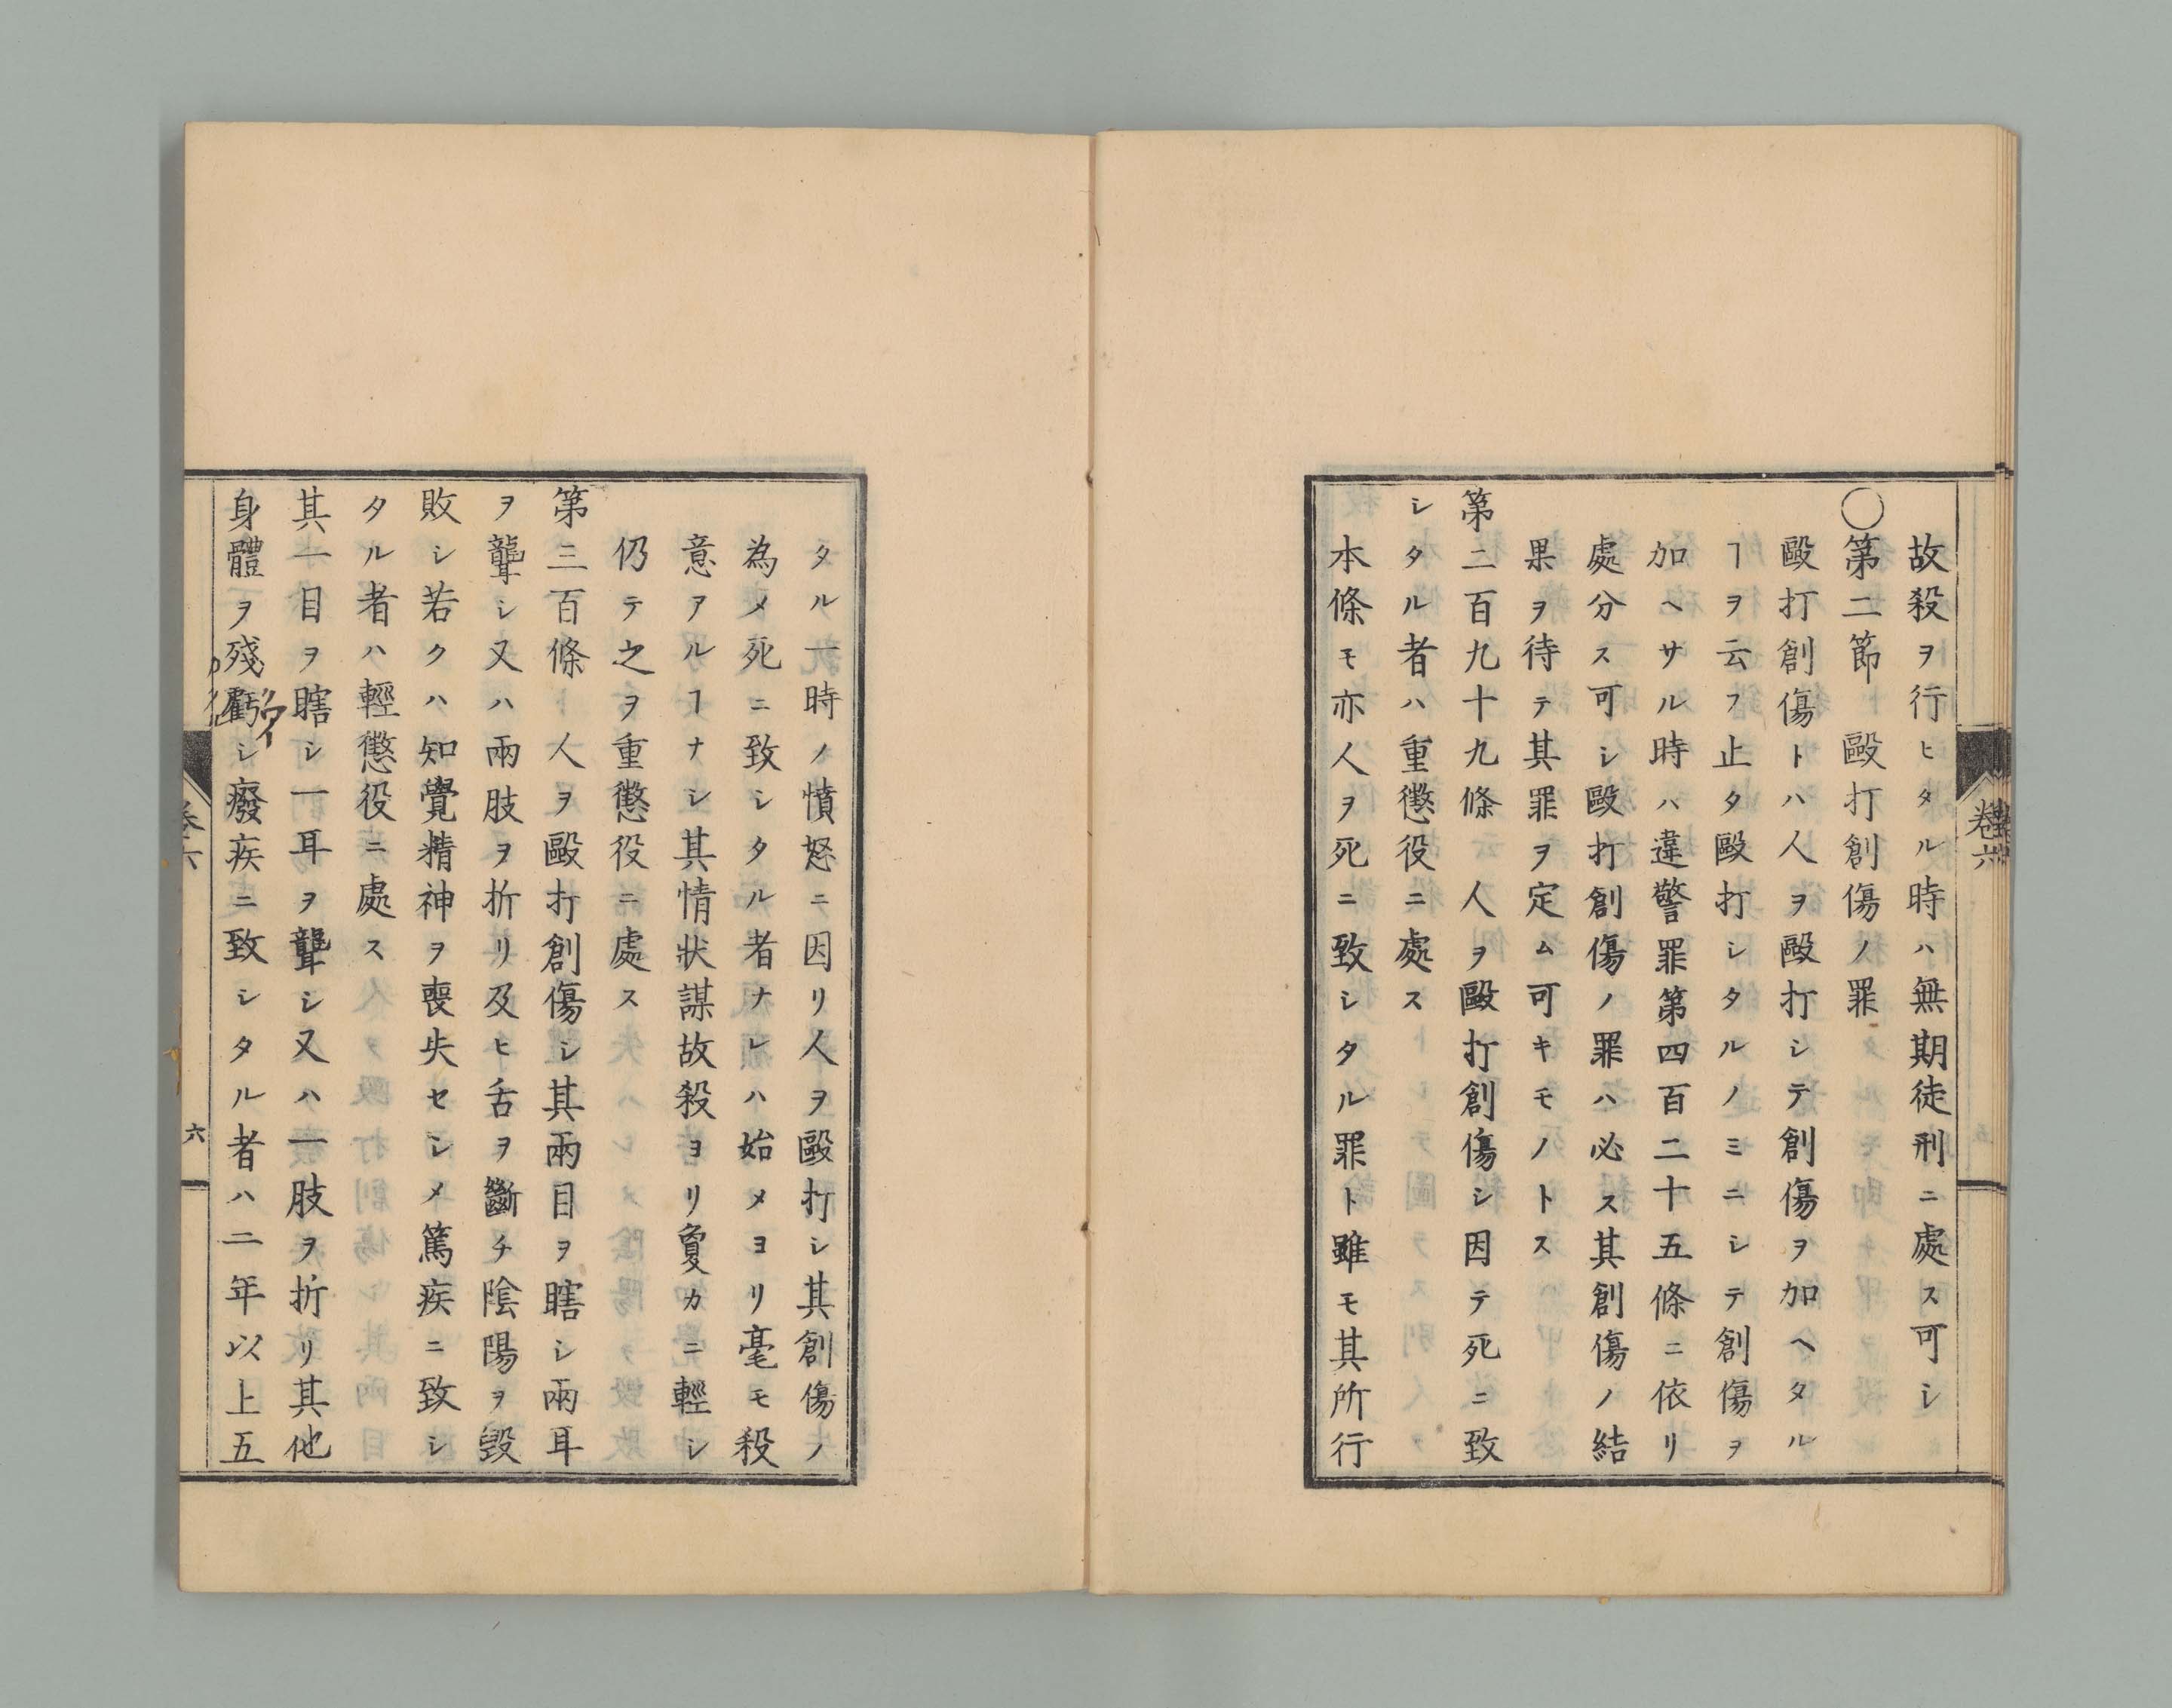 故殺ヲ行ヒタル時ハ無期徒刑ニ處ス可シ
○第二節　毆打創傷ノ罪
毆打創傷トハ人ヲ毆打シテ創傷ヲ加ヘタル
ヿヲ云フ止タ毆打シタルノミニシテ創傷ヲ
加ヘサル時ハ違警罪第四百二十五條ニ依リ
處分ス可シ毆打創傷ノ罪ハ必ス其創傷ノ結
果ヲ待テ其罪ヲ定ム可キモノトス
第二百九十九條　人ヲ毆打創傷シ因テ死ニ致
シタル者ハ重懲役ニ處ス
本條モ亦人ヲ死ニ致シタル罪ト雖モ其所行
タル一時ノ憤怒ニ因リ人ヲ毆打シ其創傷ノ
為メ死ニ致シタル者ナレハ始メヨリ毫モ殺
意アルヿナシ其情狀謀故殺ヨリ夐カニ輕シ
仍テ之ヲ重懲役ニ處ス
第三百條　人ヲ毆打創傷シ其兩目ヲ瞎シ兩耳
ヲ聾シ又ハ兩肢ヲ折リ及ヒ舌ヲ斷チ陰陽ヲ毀
敗シ若クハ知覺精神ヲ喪失セシメ篤疾ニ致シ
タル者ハ輕懲役ニ處ス
其一目ヲ瞎シ一耳ヲ聾シ又ハ一肢ヲ折リ其他
身體ヲ殘虧シ癈疾ニ致シタル者ハ二年以上五
卷六
六